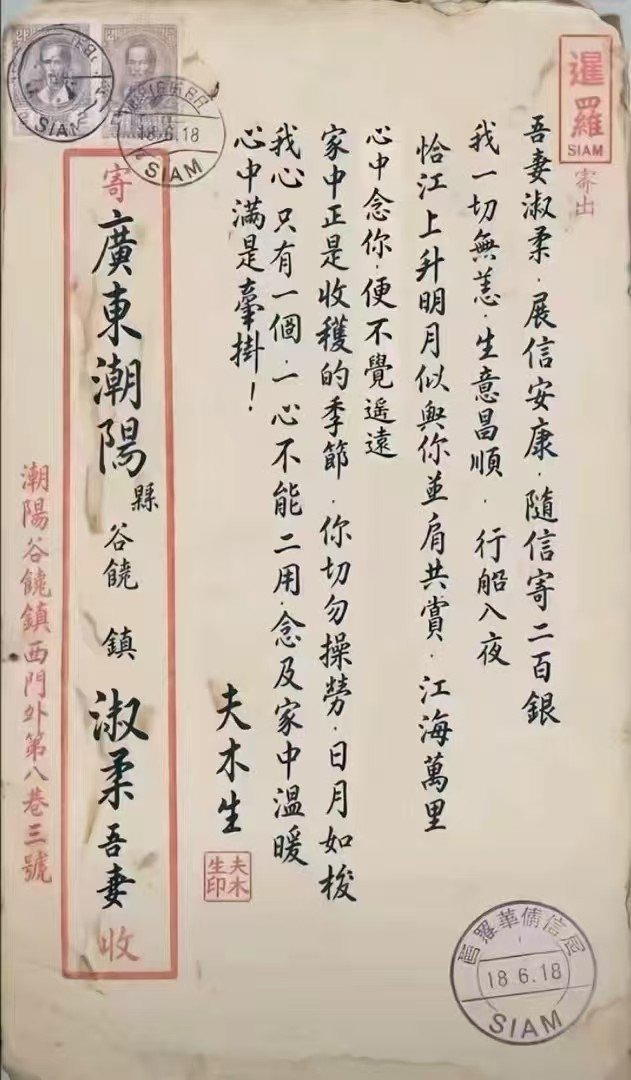 暹羅
SIAM
寄出
吾妻淑柔.展信安康.隨信寄二百銀
我一切無恙.生意昌順.行船入夜
恰江上升明月似與你並肩共賞.江海萬里
心中念你.便不覺遙遠
家中正是收穫的季節.你切勿操勞.日月如梭
我心只有一個.一心不能二用.念及家中溫暖
心中滿是牽掛！
夫木生
夫木生印
寄
廣東潮陽縣谷饒鎮淑柔吾妻
收
潮陽谷饒鎮西門外第八巷三號
SIAM
18.6.18
SIAM
華僑信局
18.6.18
SIAM